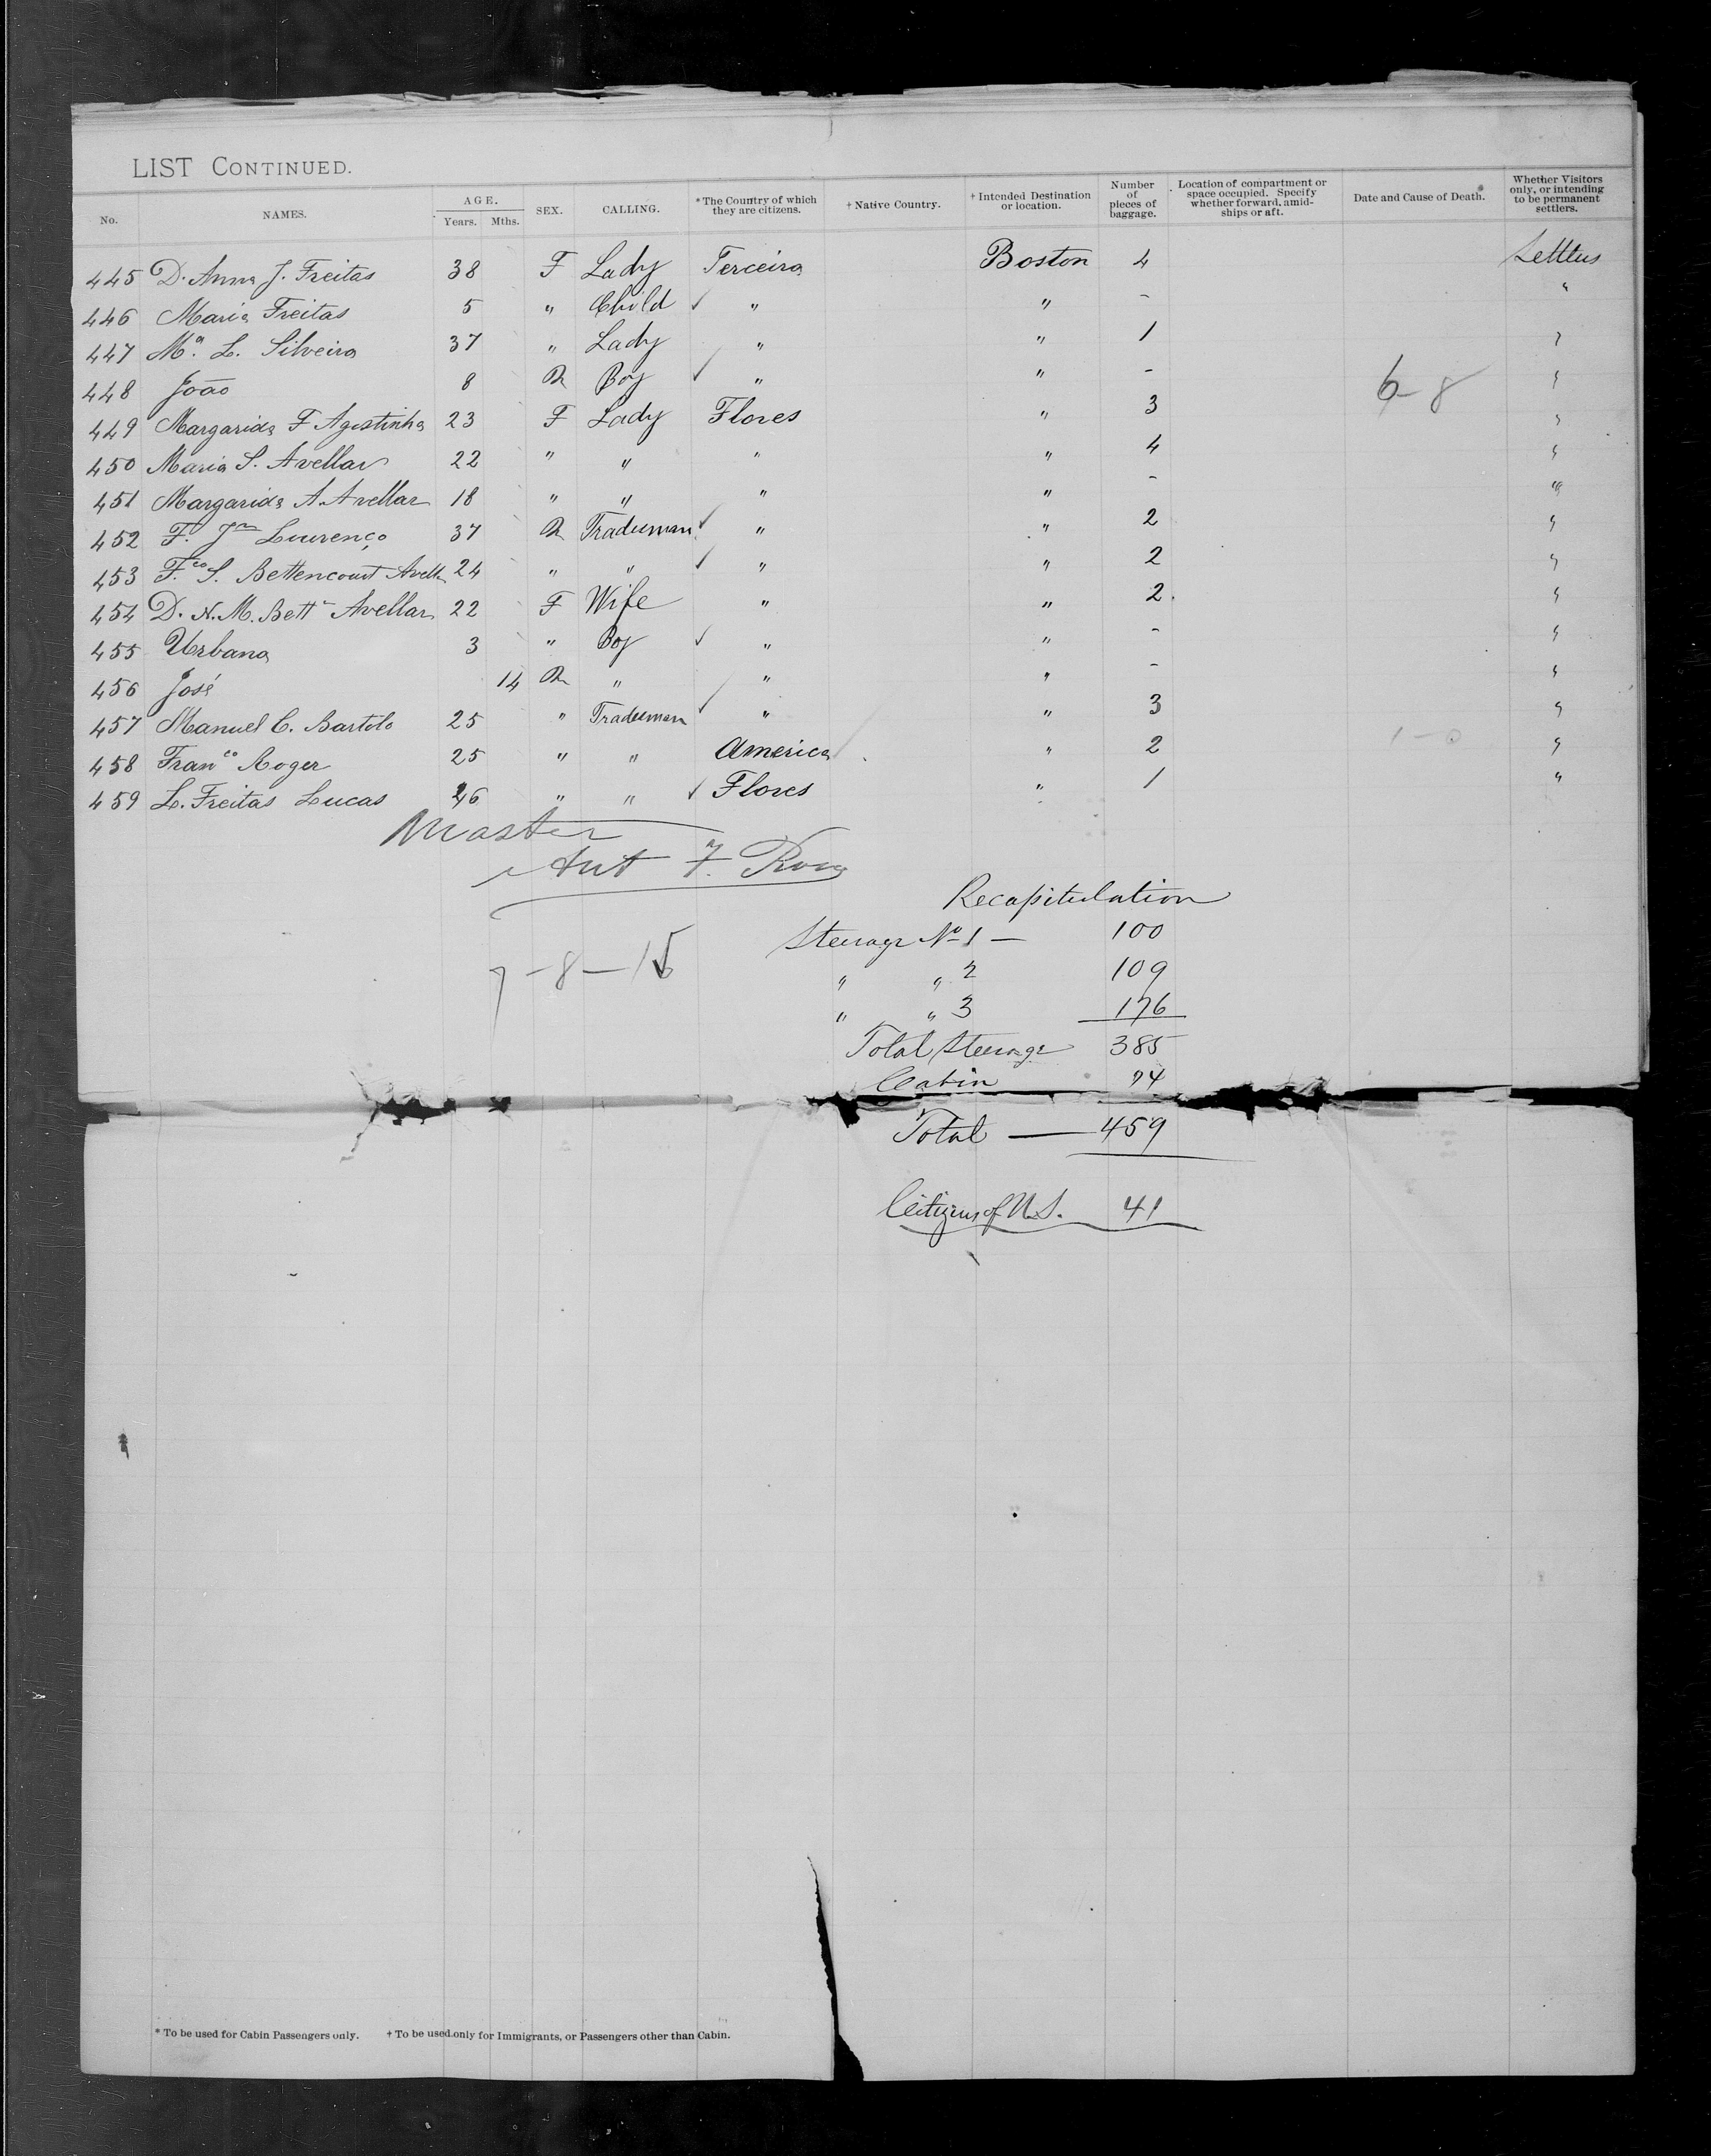 LIST CONTINUED.
No. NAMES. AGE. Years. Mths. SEX. CALLING. *The Country of which they are citizens. †Native Country. †Intended Destination or location. Number of pieces of baggage. Location of compartment or space occupied. Specify whether forward, amidships or aft. Date and Cause of Death. Whether Visitors only, or intending to be permanent settlers.
445 D. Anna J. Freitas 38 F Lady Terceira Boston 4 Settlers
446 Maria Freitas 5 " Child ✓ " " - "
447 Mª. L. Silveira 37 " Lady " " 1 "
448 João 8 M Boy ✓ " " - "
6-8
449 Margarida F Agostinha 23 F Lady Flores " 3 "
450 Maria S. Avellar 22 " " " " 4 "
451 Margarida A. Avellar 18 " " " " - "
452 F. Jm Lourenço 37 M Tradesman ✓ " " 2 "
453 F.co S. Bettencourt Avellar 24 " " ✓ " " 2 "
454 D. N. M. Bett Avellar 22 F Wife " " 2. "
455 Urbana 3 " Boy ✓ " " - "
456 José 14 M " " " - "
457 Manuel C. Bartolo 25 " Tradesman ✓ " " 3 "
458 Franco Roger 25 " " America " 2 1-0 "
459 L. Freitas Lucas 26 " " ✓ Flores " 1 "
Master
Ant F.
Recapitulation
Steerage No 1 — 100
7-8-15
" " 2 109
" " 3 176
Total Steerage 385
Cabin 74
Total — 459
Citizens of U.S. 41
* To be used for Cabin Passengers only. † To be used only for Immigrants, or Passengers other than Cabin.